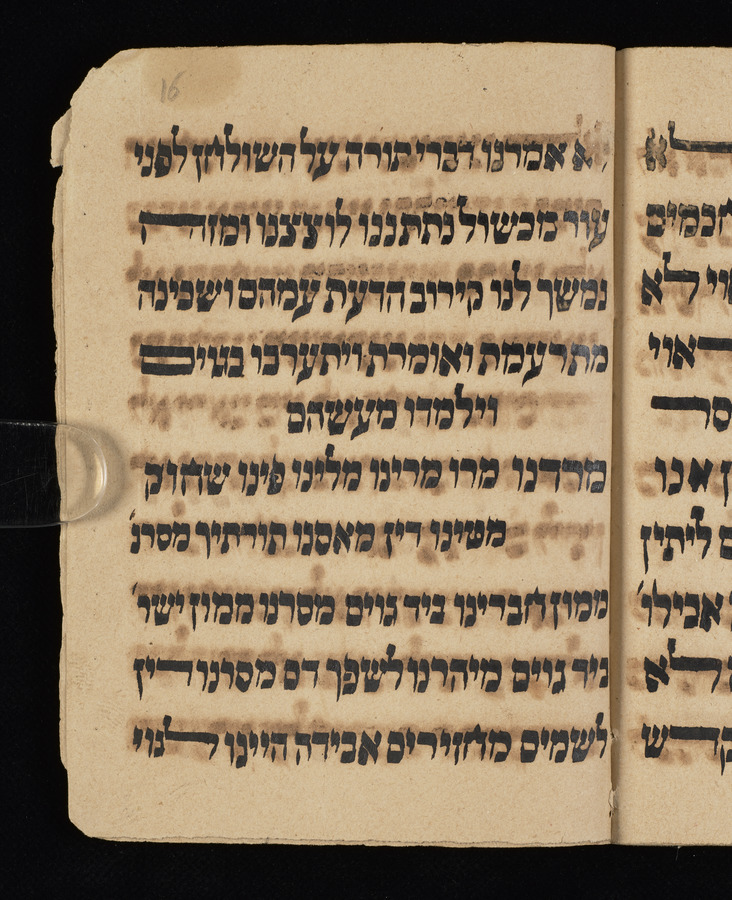 16
לא אמרנו דברי תורה על השולחן לפני
עור מכשול נתתננו לוצצנו ומזה
נמשך לנו קירוב הדעת עמהם ושכינה
מתרעמת ואומרת ויתערבו בגוים
וילמדו מעשהם
מרדנו מרו מרינו מלינו פינו שחוק
משינו דין מאסנו תורתיך מסרנ'
ממון חברינו ביד גוים מסרנו ממון ישר'
ביד גוים מיהרנו לשפך דם מסרנו דין
לשמים מחזירים אבידה היינו לגוי
א
חכמים
לא
ראוי
אנו
ליתין
אבילו'
לא